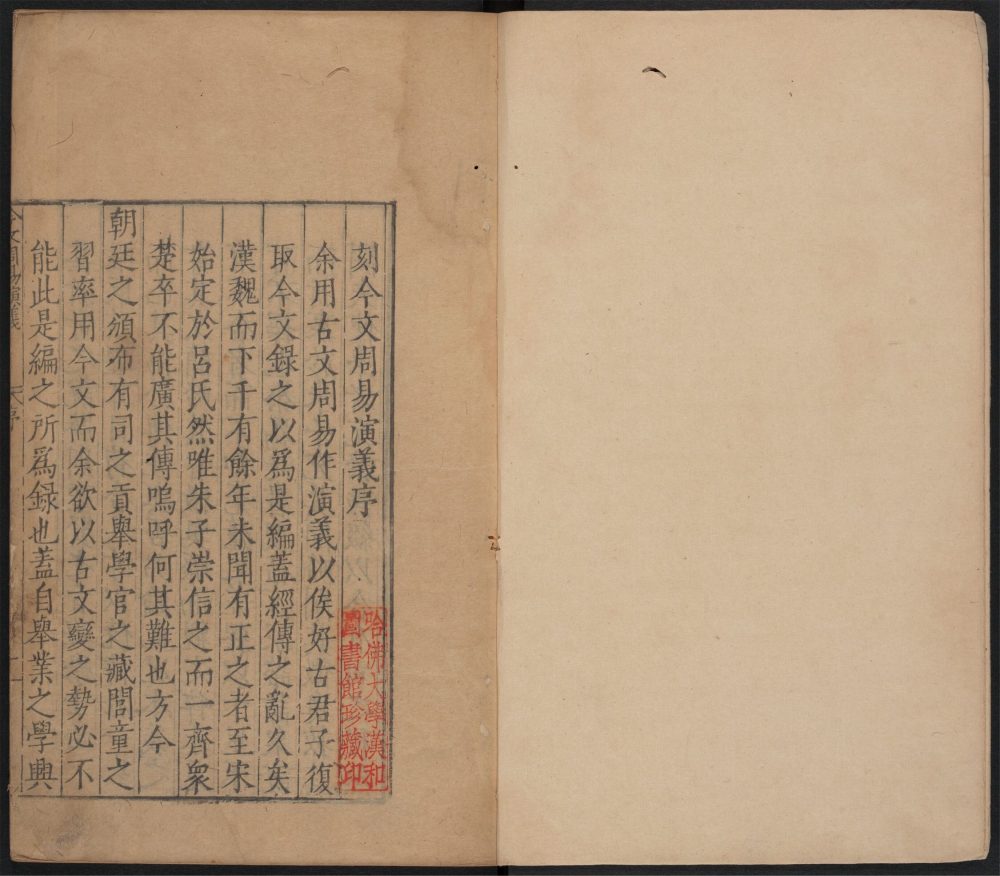 刻今文周易演義序
余用古文周易作演義以俟好古君子復
取今文錄之以爲是編蓋經傳之亂久矣
漢魏而下千有餘年未聞有正之者至宋
始定於呂氏然唯朱子崇信之而一齊衆
楚卒不能廣其傳嗚呼何其難也方今
朝廷之頒布有司之貢舉學官之藏閭童之
習率用今文而余欲以古文變之勢必不
能此是編之所爲録也蓋自舉業之學興
今文周易演義
序
哈佛大學漢和
圖書館珍藏印